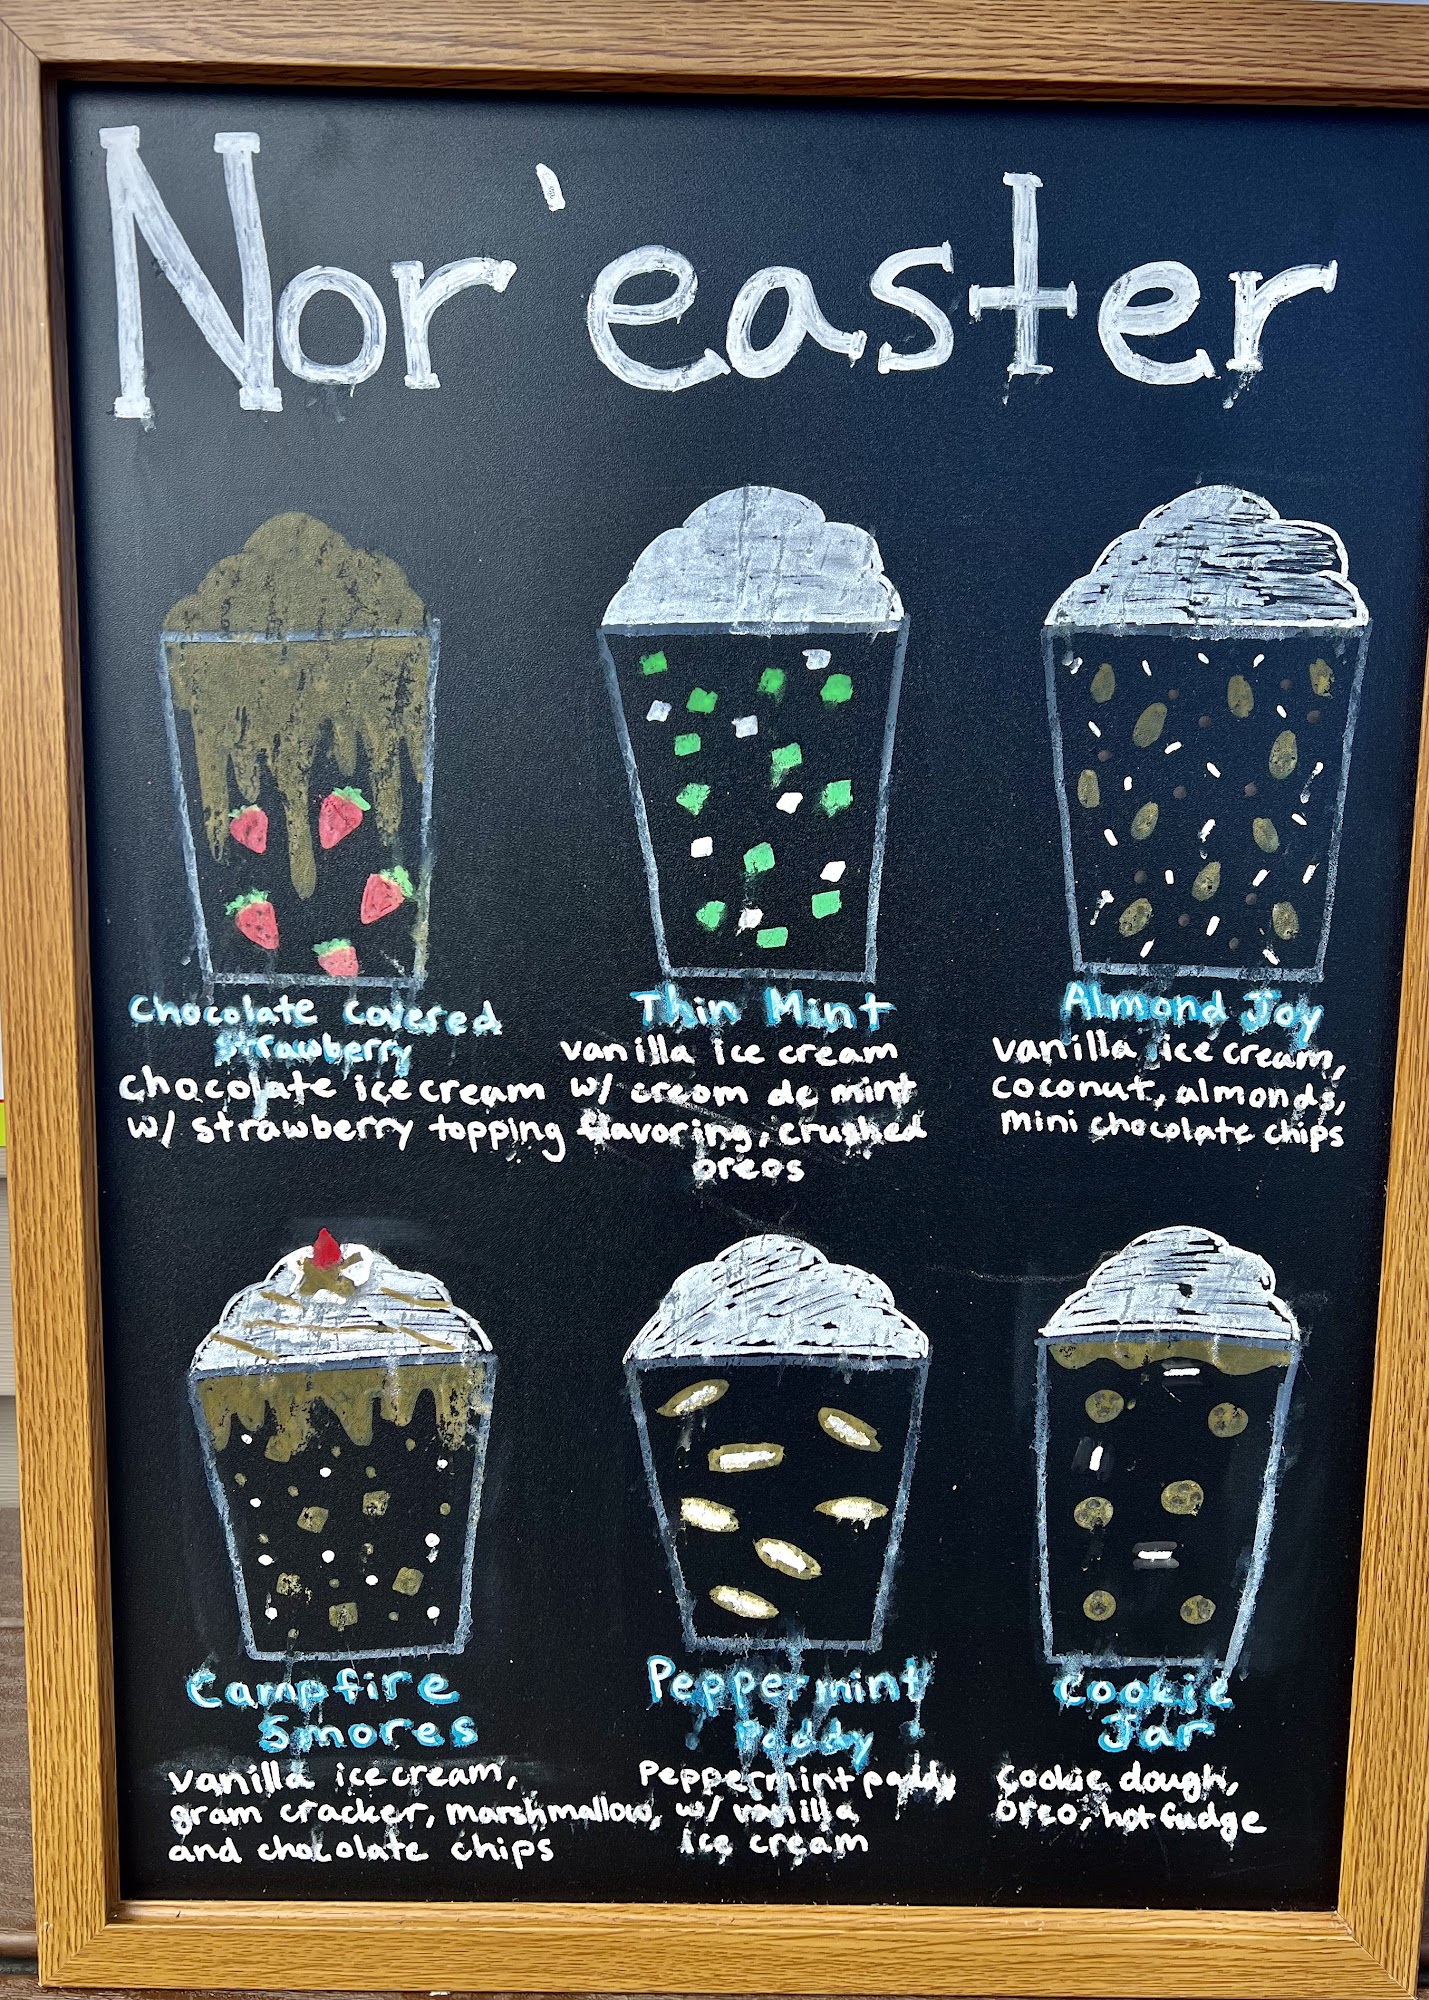 Nor'easter
Chocolate Covered
Strawberry
chocolate ice cream
w/ strawberry topping
Thin Mint
vanilla ice cream
w/ creom de mint
flavoring, crushed
oreos
Almond Joy
vanilla ice cream,
coconut, almonds,
mini chocolate chips
Campfire
Smores
vanilla ice cream,
gram cracker, marshmallow,
and chocolate chips
Peppermint
Paddy
Peppermint paddy
w/ vanilla
ice cream
Cookie
Jar
Cookie dough,
oreo, hot fudge